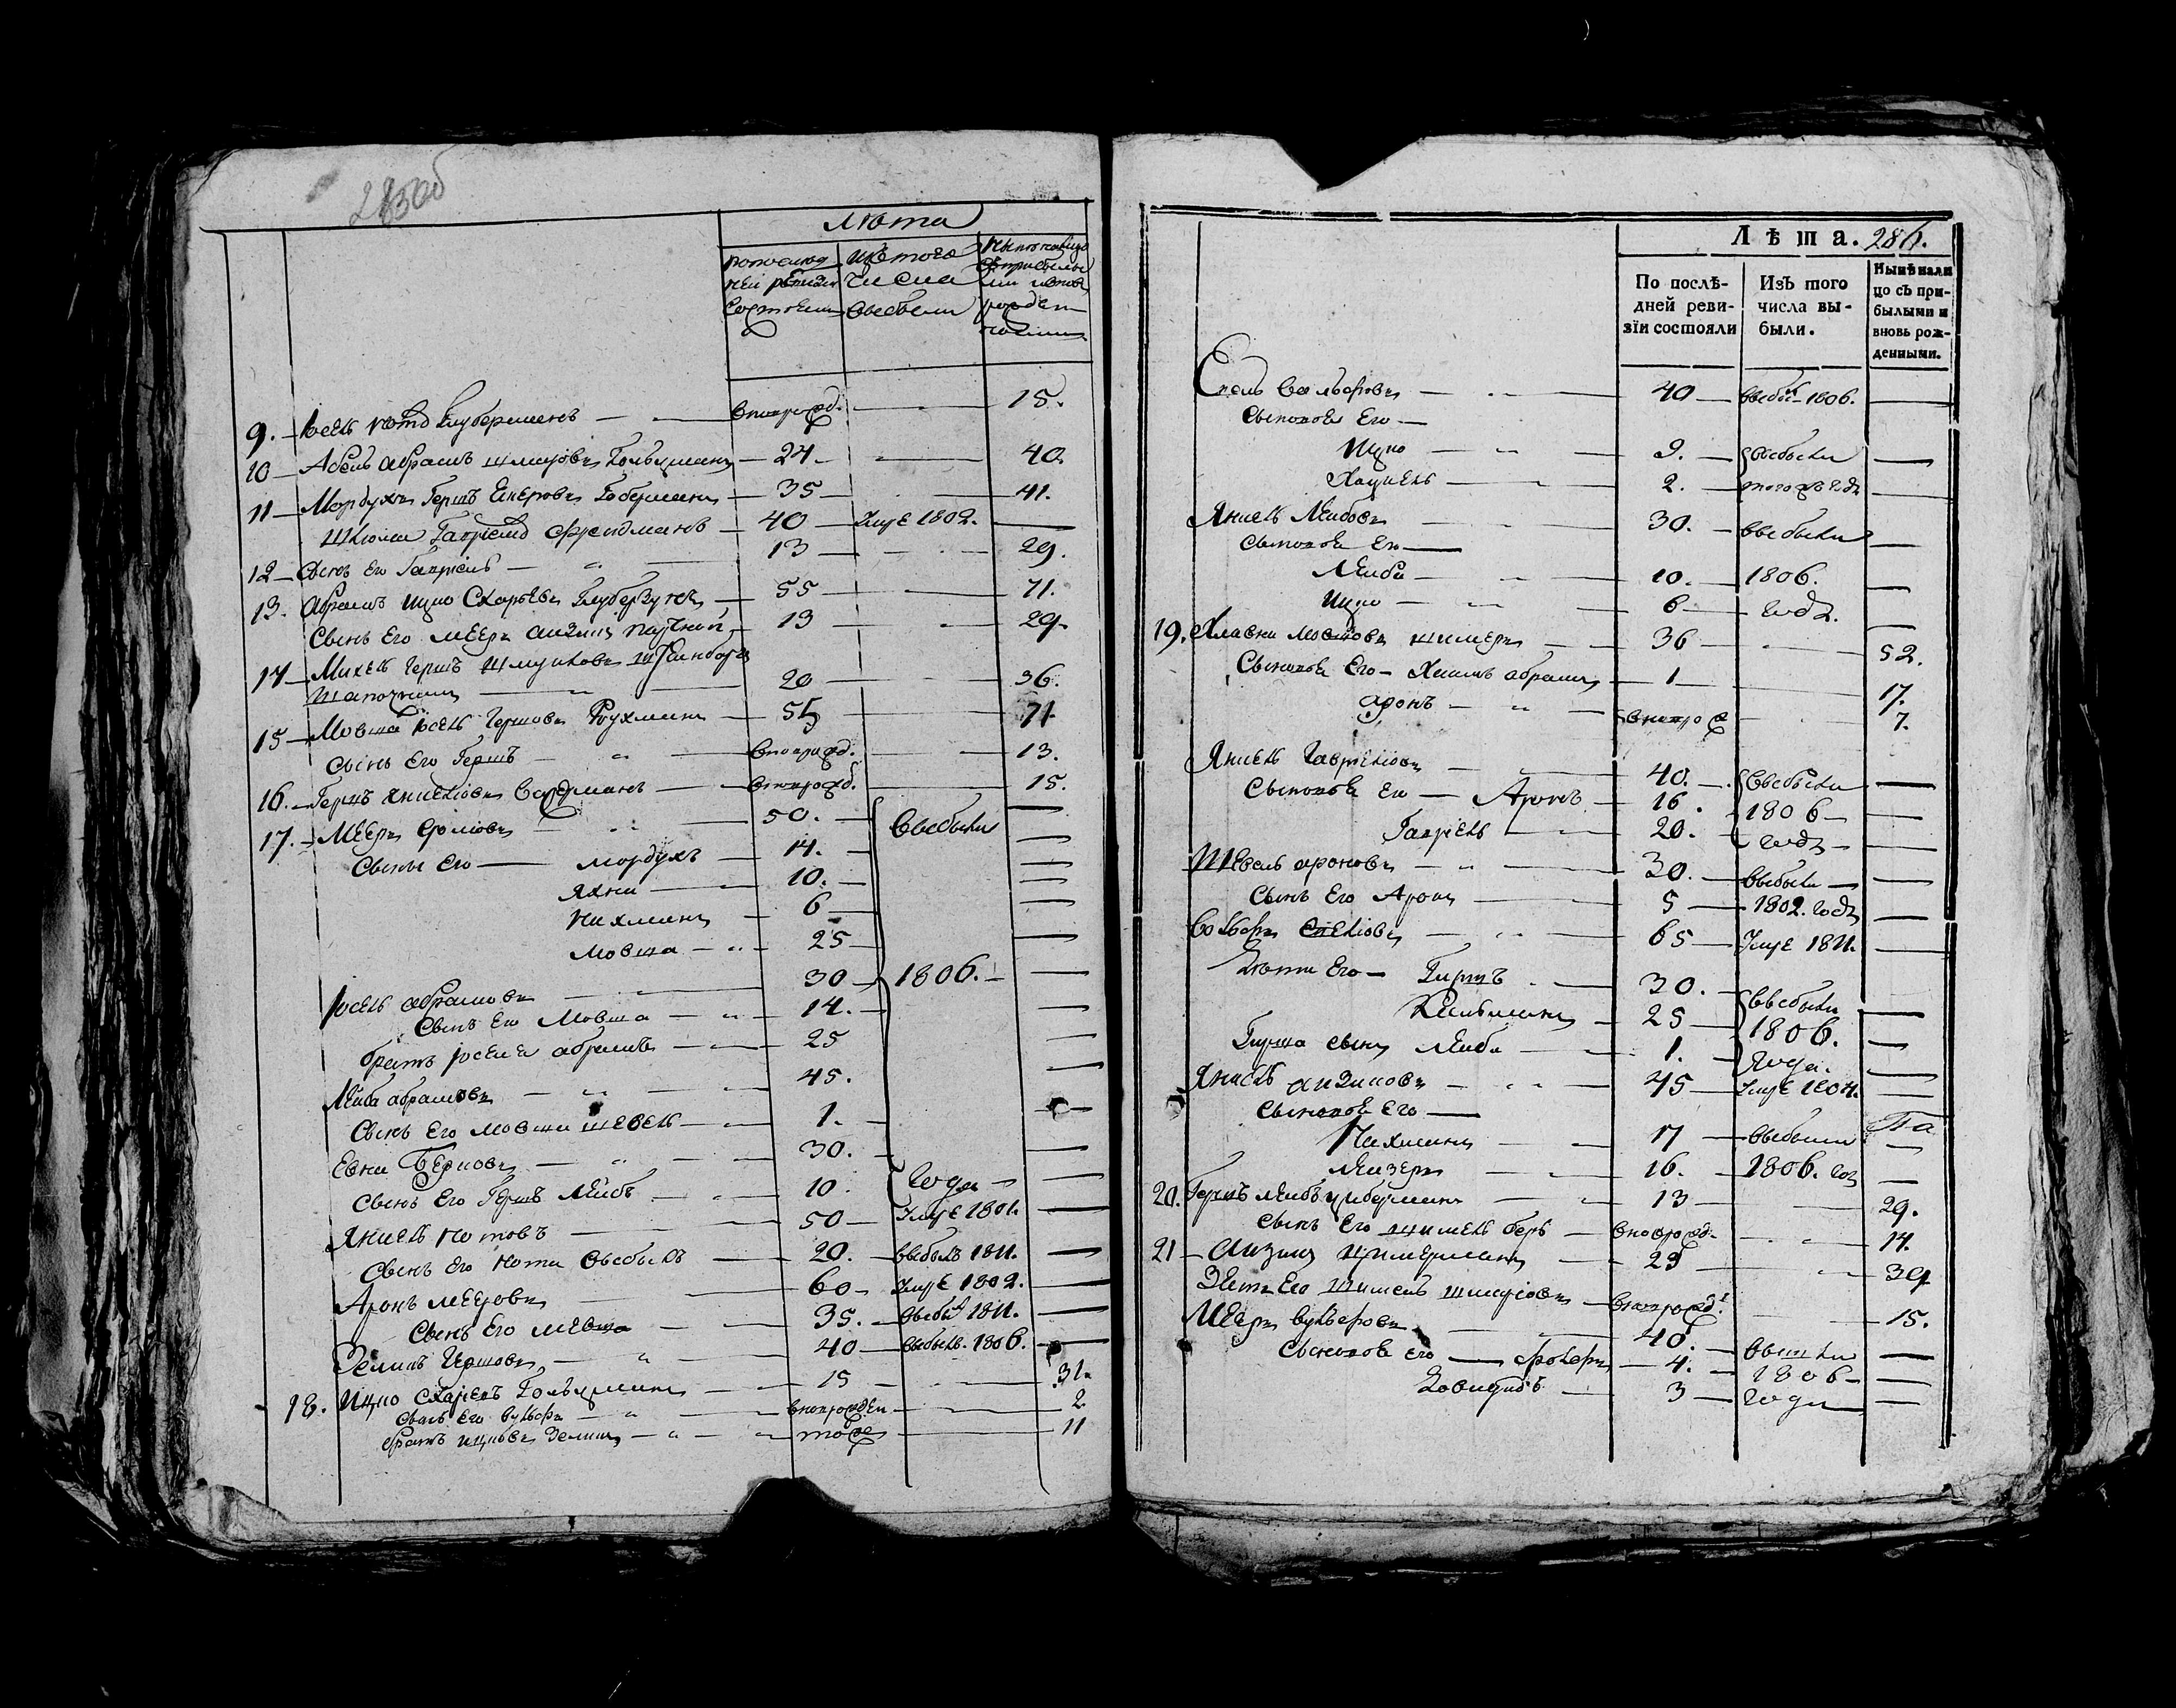 285об
Лѣта
по последней ревизии состояли
из того числа выбыли
ныне налицо с прибылыми и вновь рожденными
9. Іосель Нота Глуберманъ — вновьрожд. — 15.
10 — Абель Абрамъ Шмулiовъ Гольцманъ — 24 — 40.
11 — Мордухъ Гершъ Беперовъ Гоберманъ — 35 — 41.
Шлiома Гаврiелъ Фрейдманъ — 40 — Умре 1802. —
12 — Сынъ Его Гаврiель — 13 — 29.
13. Абрамъ Ицко Схарiевъ — 55 — 71.
Сынъ Его Мееръ Айзикъ — 13 — 29.
14 — Михель Гершъ Шмулiовъ
20 — 36.
15 — Мовша Іосель Гершовъ Рухманъ — 55 — 71.
Сынъ Его Гершъ — вновьрожд. — 13.
16. — Гершъ Янкелiовъ Ваберманъ — вновьрожд. — 15.
17. — Мееръ Сролiовъ — 50. — выбыли —
Сыны Его — Мордухъ — 14. —
Яхна — 10. —
Нахманъ — 6 —
Мовша — 25 —
Іосель Абрамовъ — 30 — 1806. —
Сынъ Его Мовша — 14. —
братъ Іоселя Абрамъ — 25 —
Лейба Абрамовъ — 45. —
Сынъ Его Мовша Шевель — 1. —
Евна Берковъ — 30. —
Сынъ Его Гершъ Лейбъ — 10. — года —
Янкель Нотовъ — 50 — Умре 1801. —
Сынъ Его Нота выбылъ — 20. — выбылъ 1811. —
Аронъ Мееровъ — 60 — Умре 1802. —
Сынъ Его Мевша — 35. — выбылъ 1811. —
Зеликъ Ицковъ — 40 — выбылъ. 1806. —
18. Ицко Схарiевъ Гольцманъ — 15 — 31.
Сынъ Его Вульфъ — вновьрожден — 2
братъ Ицковъ Зеликъ — тоже — 11
Лѣта. 286.
По послѣдней ревизiи состояли
Изъ того числа выбыли.
Нынѣ налицо съ прибылыми и вновь рожденными.
Вольфовъ — 40 — выбылъ 1806. —
Сыновья Его —
Ицко — 9. — выбыли —
Хацкель — 2. — того жъ года —
Янкель Лейбовъ — 30. — выбыли —
Сыновья Его —
Лейба — 10. — 1806. —
Ицко — 6 — года. —
19. Хлавна Мовшовъ — 36 — 52.
Сыновья Его — Хаимъ Абрамъ — 1 — 17.
Аронъ — вновьрож — 7.
Янкель Гаврилiовъ — 40. — выбыли —
Сыновья Его — Аронъ — 16. — 1806 —
Гаврiель — 20. — года —
Шевель Ароновъ — 30. — выбыли —
Сынъ Его Аронъ — 5 — 1802. года —
Вольфъ — 65 — Умре 1811. —
Зяти Его — Гиршъ — 30. — выбыли —
Кельманъ — 25 — 1806. —
Гирша сынъ Лейба — 1. — года. —
Янкель Айзиковъ — 45 — Умре 1804. —
Сыновья Его —
Нахманъ — 17 — выбыли —
Лейзеръ — 16. — 1806. год —
20. Гершъ Лейбъ Циберманъ — 13 — 29.
Сынъ Его Шимель Беръ — вновьрожд. — 14.
21 — Айзикъ Цимерманъ — 23 — 39
Зять Его Шимель Шмулiовъ — вновьрожд. — 15.
Мееръ Вульфовъ — 40. — вышли —
Сыновья Его — — 4. — 1806 —
Довидъ — 3 — года —